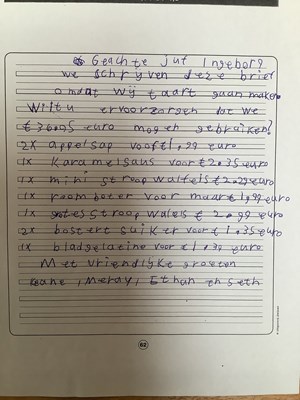 Geachte juf Ingebor?
we schrijven deze brief
omdat wij taart gaan maken
Wilt u ervoorzorgen dat we
€36,05 euro mogen gebruiken?
2x appelsap voor €1,29 euro
1x karamelsaus voor €2.35 euro
1x mini stroopwalfels €2.29 euro
1x roomboter voor maar €1,99 euro
1x stroop wafels € 2,99 euro
2x bostert suiker voor €1.35 euro
1x bladgelatine voor €1,39 euro
Met vriendlijke groeten
, Meray, Ethan en seth
62